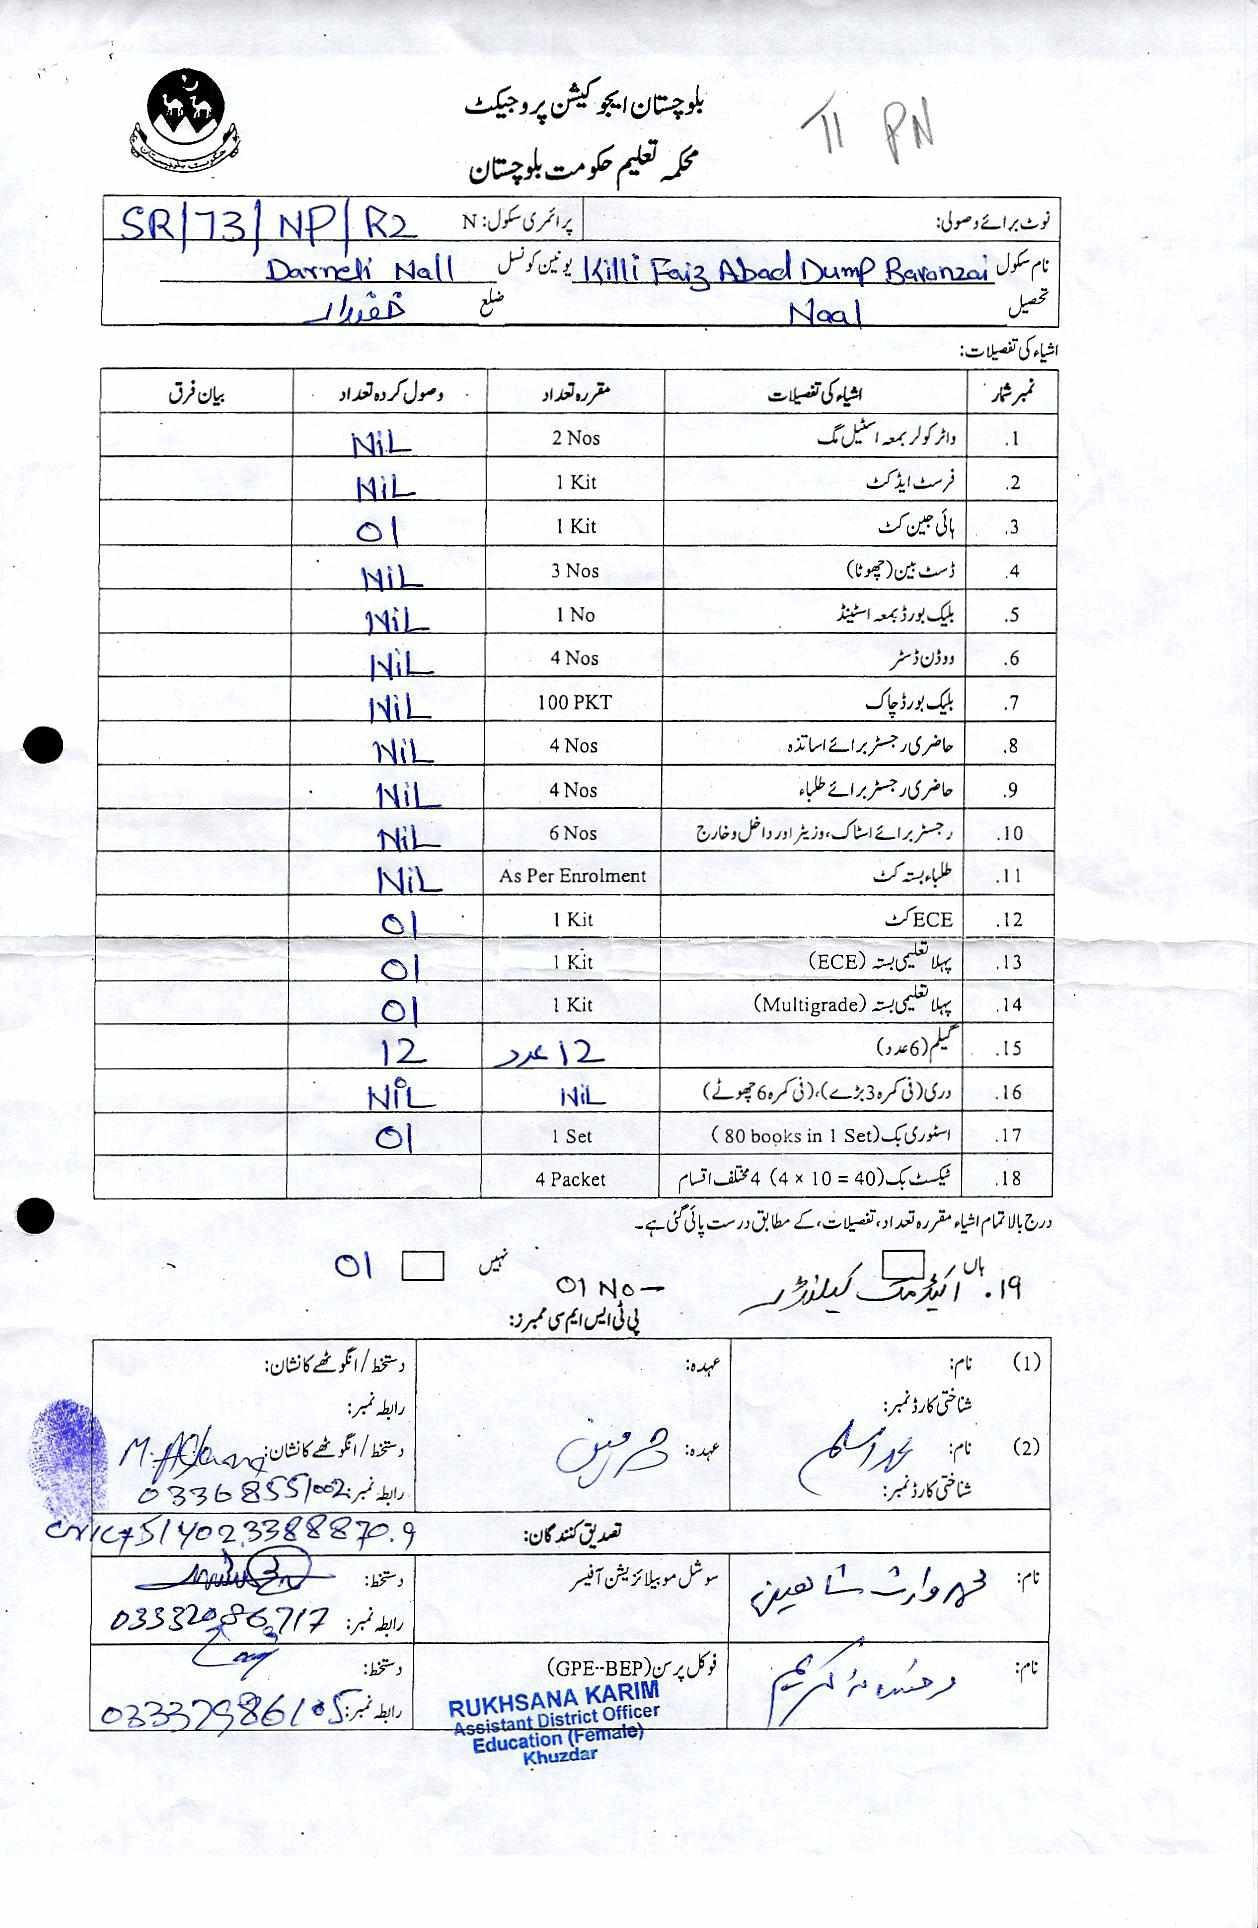 بلوچستان ایجوکیشن پروجیکٹ
محکمہ تعلیم حکومت بلوچستان
حکومت بلوچستان
PN
نوٹ برائے وصولی: پرائمری سکول: N SR/73/NP/R2
نام سکول Killi Faiz Abad Dump Baranzai یونین کونسل Darneli Nall
تحصیل Naal ضلع خضدار
اشیاء کی تفصیلات:
نمبر شمار اشیاء کی تفصیلات مقررہ تعداد وصول کردہ تعداد بیان فرق
1. واٹر کولر بمعہ اسٹیل مگ 2 Nos NiL
2. فرسٹ ایڈ کٹ 1 Kit NiL
3. ہائی جین کٹ 1 Kit 01
4. ڈسٹ بین (چھوٹا) 3 Nos NiL
5. بلیک بورڈ بمعہ اسٹینڈ 1 No NiL
6. ووڈن ڈسٹر 4 Nos NiL
7. بلیک بورڈ چاک 100 PKT NiL
8. حاضری رجسٹر برائے اساتذہ 4 Nos NiL
9. حاضری رجسٹر برائے طلباء 4 Nos NiL
10. رجسٹر برائے اسٹاک، وزیٹر اور داخل و خارج 6 Nos NiL
11. طلباء بستہ کٹ As Per Enrolment NiL
12. ECE کٹ 1 Kit 01
13. پہلا تعلیمی بستہ (ECE) 1 Kit 01
14. پہلا تعلیمی بستہ (Multigrade) 1 Kit 01
15. گیلم (6 عدد) 12 عدد 12
16. دری (فی کمرہ 3 بڑے)، (فی کمرہ 6 چھوٹے) NiL NiL
17. اسٹوری بک (80 books in 1 Set) 1 Set 01
18. ٹیکسٹ بک (4 × 10 = 40) 4 مختلف اقسام 4 Packet
درج بالا تمام اشیاء مقررہ تعداد، تفصیلات، کے مطابق درست پائی گئی ہے۔
ہاں نہیں 01
19. اکیڈمک کیلنڈر 01 No –
پی ٹی ایس ایم سی ممبرز:
(1) نام: عہدہ: دستخط/انگوٹھے کا نشان:
شناختی کارڈ نمبر: رابطہ نمبر:
(2) نام: محمد اسلم عہدہ: دستخط/انگوٹھے کا نشان:
شناختی کارڈ نمبر: رابطہ نمبر: 03368551002
تصدیق کنندگان: 514023388870.9
نام: محمد وارث شاھین سوشل موبیلائزیشن آفیسر دستخط:
رابطہ نمبر: 03332086717
نام: رخسانہ کریم فوکل پرسن (GPE--BEP) دستخط:
رابطہ نمبر: 03337986105
RUKHSANA KARIM
Assistant District Officer
Education (Female)
Khuzdar